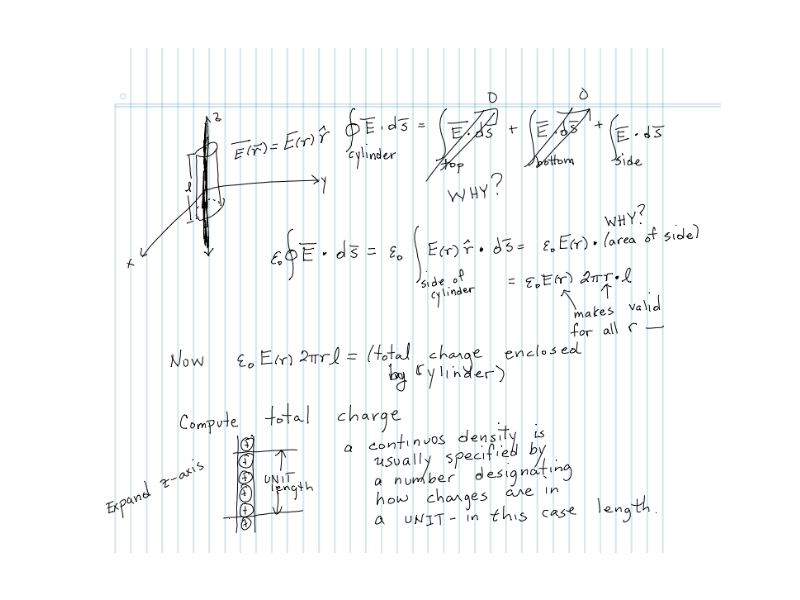 z
l
y
x
E̅(r̅) = E(r) r̂
∮ E̅ · ds̅ = ∫ E̅ · ds̅ + ∫ E̅ · ds̅ + ∫ E̅ · ds̅
cylinder top 0 bottom 0 side
WHY?
WHY?
ε₀ ∮ E̅ · ds̅ = ε₀ ∫ E(r) r̂ · ds̅ = ε₀ E(r) · (area of side)
side of
cylinder
= ε₀ E(r) 2πr · l
makes valid
for all r —
Now ε₀ E(r) 2πrl = (total charge enclosed
by cylinder)
Compute total charge
Expand z-axis
+
+
+
+
+
+
UNIT
length
a continuos density is
usually specified by
a number designating
how charges are in
a UNIT - in this case length.